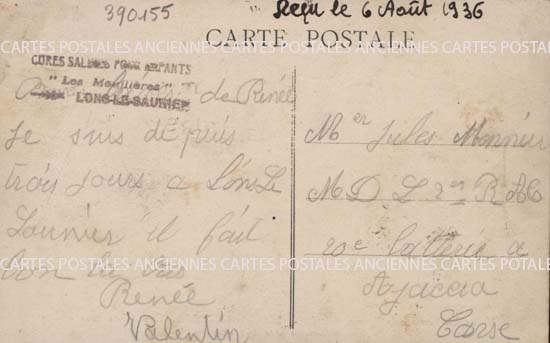 390155
Reçu le 6 Août 1936
CARTE POSTALE
CARTES POSTALES ANCIENNES CARTES POSTALES ANCIENNES CARTES POSTALES ANCIENNES
CURES SALINES POUR ENFANTS
"Les Mouillères"
LONS-LE-SAUNIER
de Renée
Je suis depuis
trois jours a Lons Le
Saunier il fait
bon
Renée
Valentin
Mer Jules Monnier
M D L 2 R A C
20e batterie a
Ajaccia
Corse
CARTES POSTALES ANCIENNES CARTES POSTALES ANCIENNES CARTES POSTALES ANCIENNES